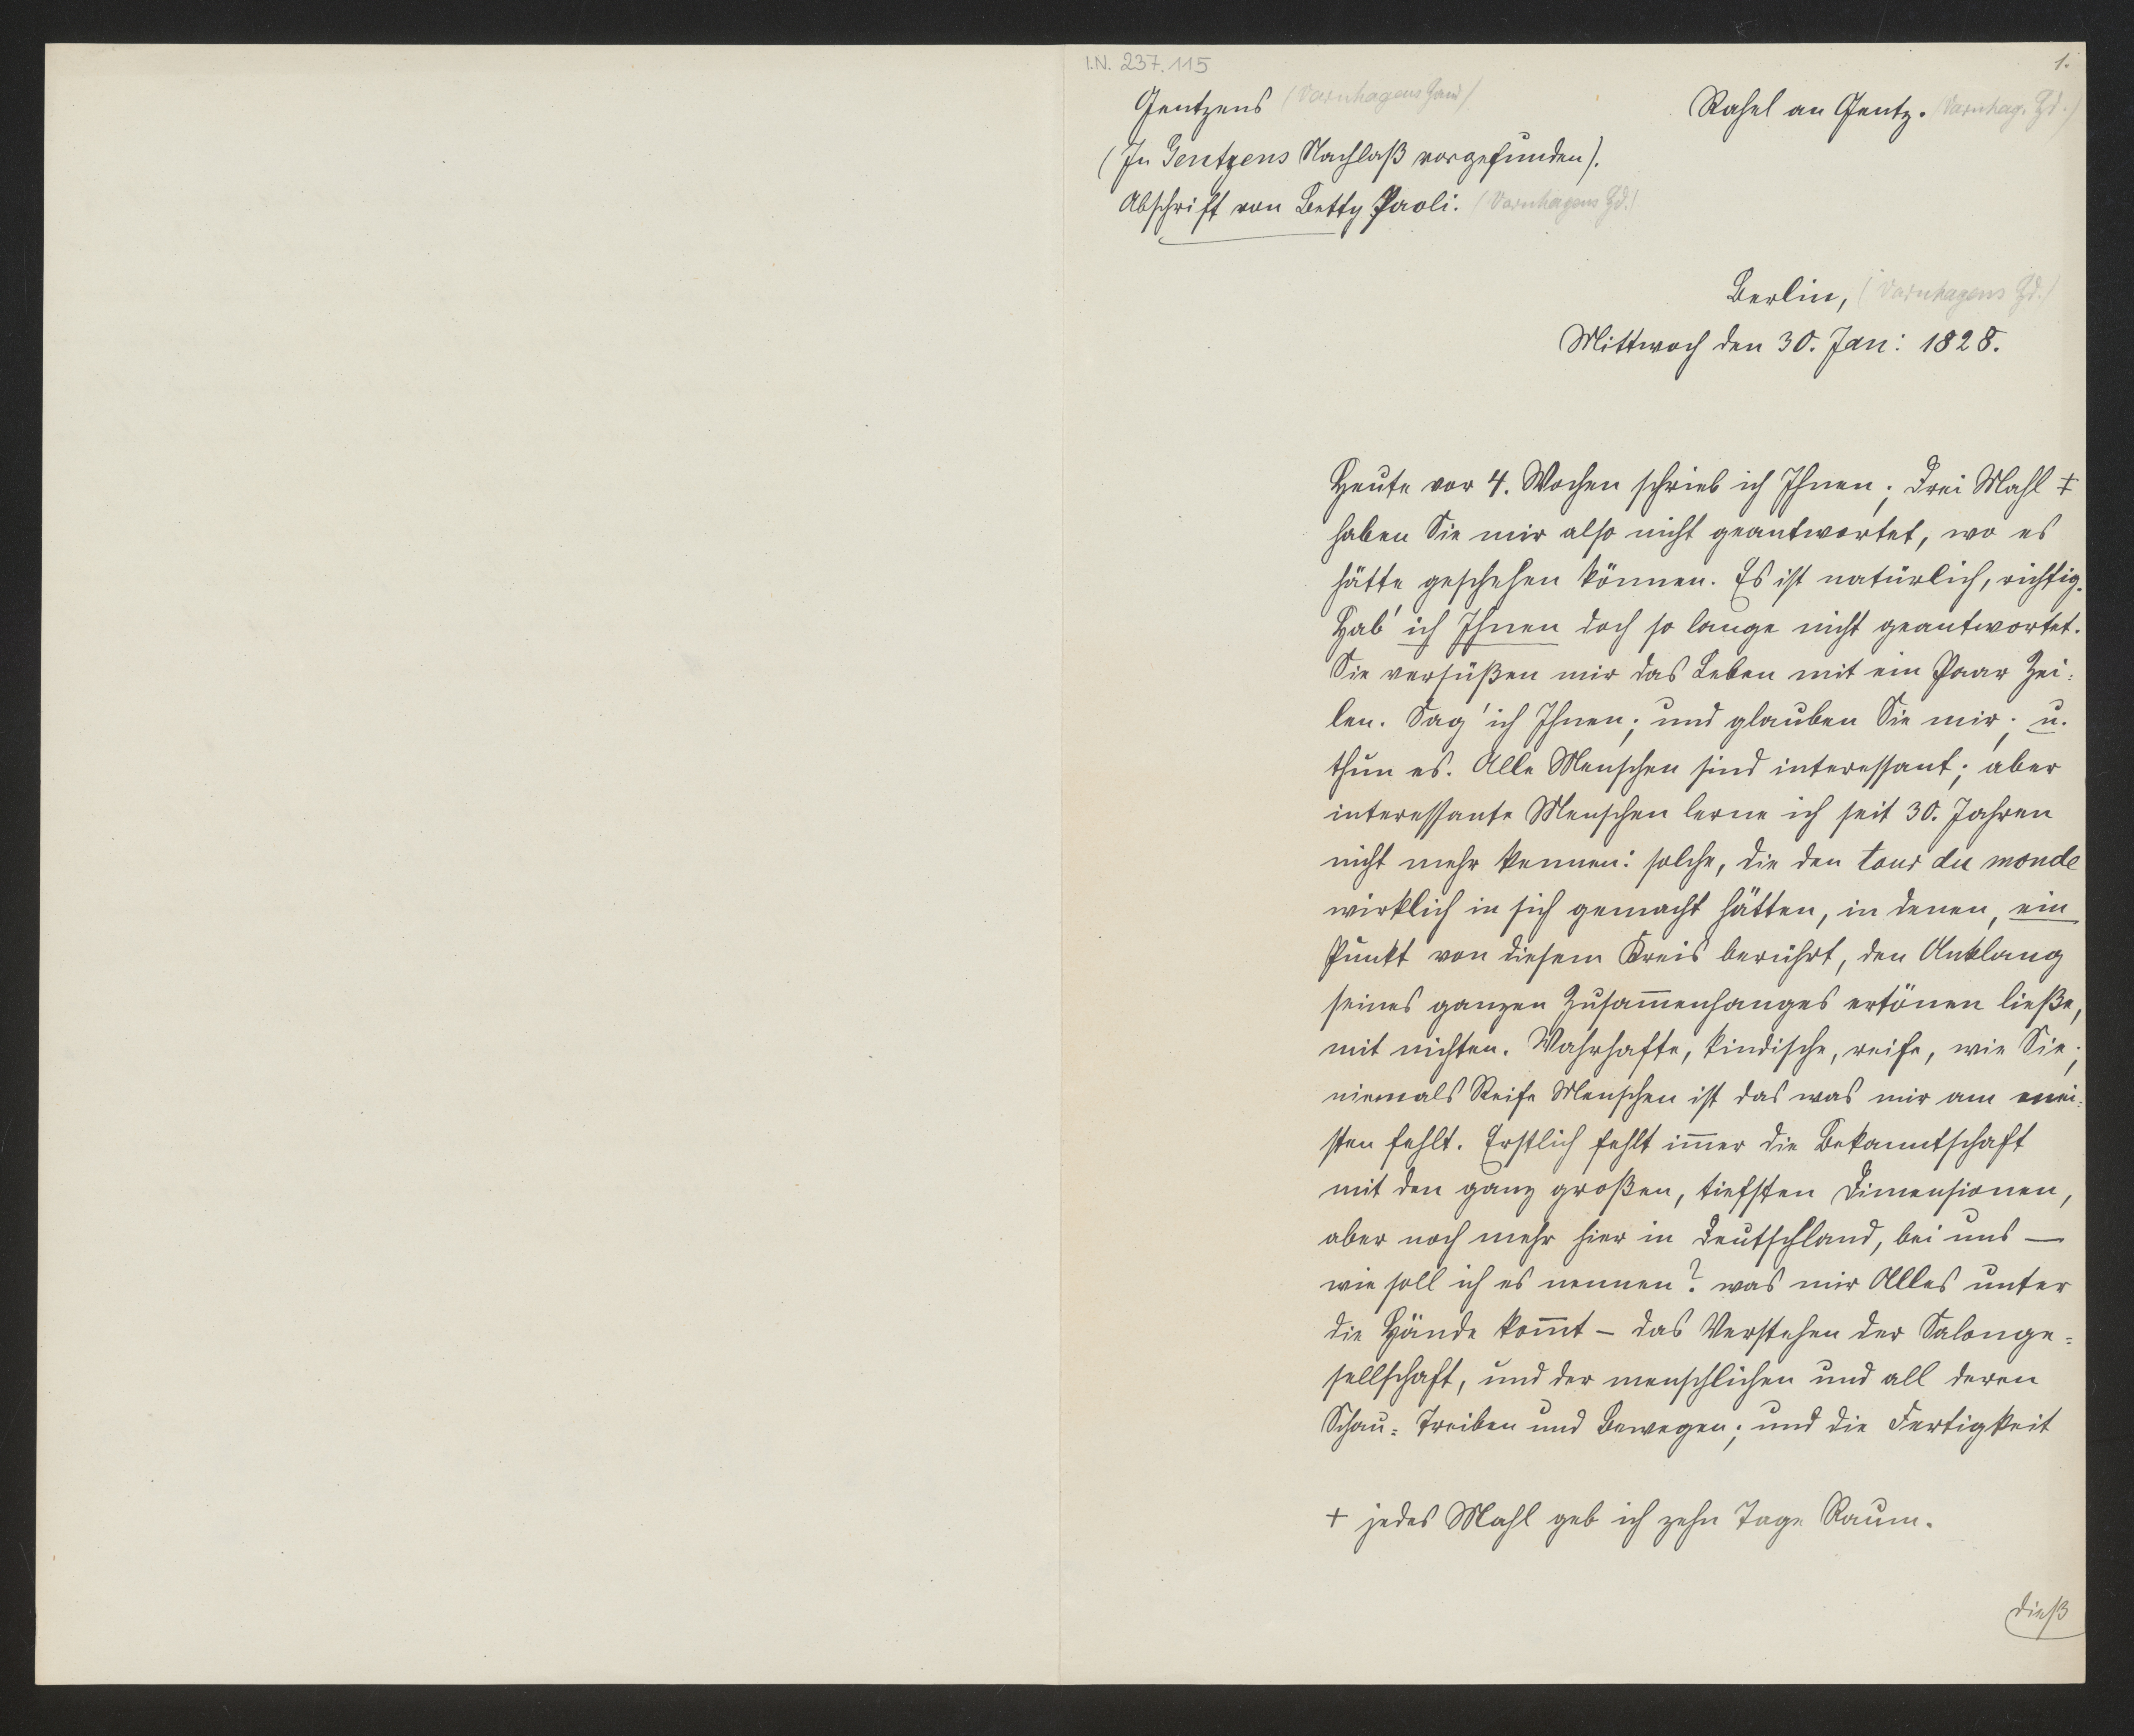 I.N. 237.115
1.
Gentzens (Varnhagens Hand)
Rahel an Gentz. (Varnhag. Hd.)
(In Gentzens Nachlaß vorgefunden).
Abschrift von Betty Paoli. (Varnhagens Hd.)
Berlin, (Varnhagens Hd.)
Mittwoch den 30. Jan: 1828.
Heute vor 4. Wochen schrieb ich Ihnen; Drei Mahl ‡
haben Sie mir also nicht geantwortet, wo es
hätte geschehen können. Es ist natürlich, richtig.
Hab' ich Ihnen doch so lange nicht geantwortet.
Sie versüßen mir das Leben mit ein Paar Zei-
len. Sag' ich Ihnen; und glauben Sie mir; u.
thun es. Alle Menschen sind interessant; aber
interessante Menschen lerne ich seit 30. Jahren
nicht mehr kennen: solche, die den tour du monde
wirklich in sich gemacht hätten, in denen, ein
Punkt von diesem Kreis berührt, den Anklang
seines ganzen Zusam̅enhanges ertönen ließe,
mit nichten. Wahrhafte, kindische, reife, wie Sie;
niemals Reife Menschen ist das was mir am mei-
sten fehlt. Erstlich fehlt im̅er die Bekanntschaft
mit den ganz großen, tiefsten Dimensionen,
aber noch mehr hier in Deutschland, bei uns —
wie soll ich es nennen? was mir Alles unter
die Hände kom̅t – das Verstehen der Salonge-
sellschaft, und der menschlichen und all deren
Schau- Treiben und Bewegen; und die Fertigkeit
‡ jedes Mahl geb ich zehn Tage Raum.
dieß